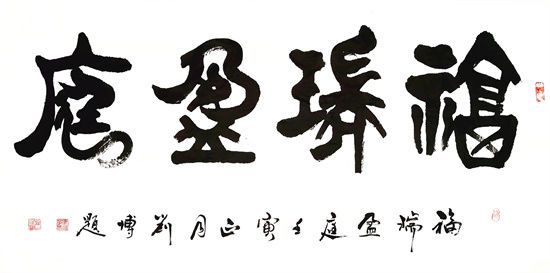 福瑞盈庭
福瑞盈庭壬寅正月劉博題